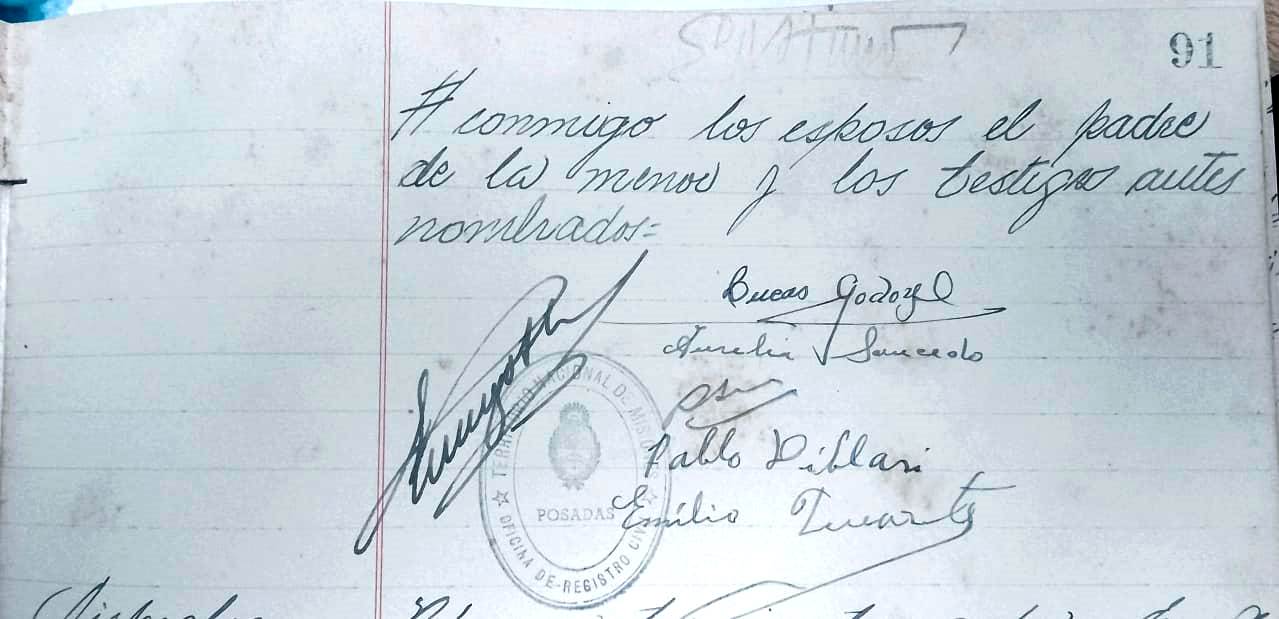 91
# conmigo los esposos el padre
de la menor y los testigos antes
nombrados=
Lucas Godoy
Aurelia Saucedo
Pablo Villari
Emilio Duarte
TERRITORIO NACIONAL DE MISIONES
POSADAS
OFICINA DE REGISTRO CIVIL